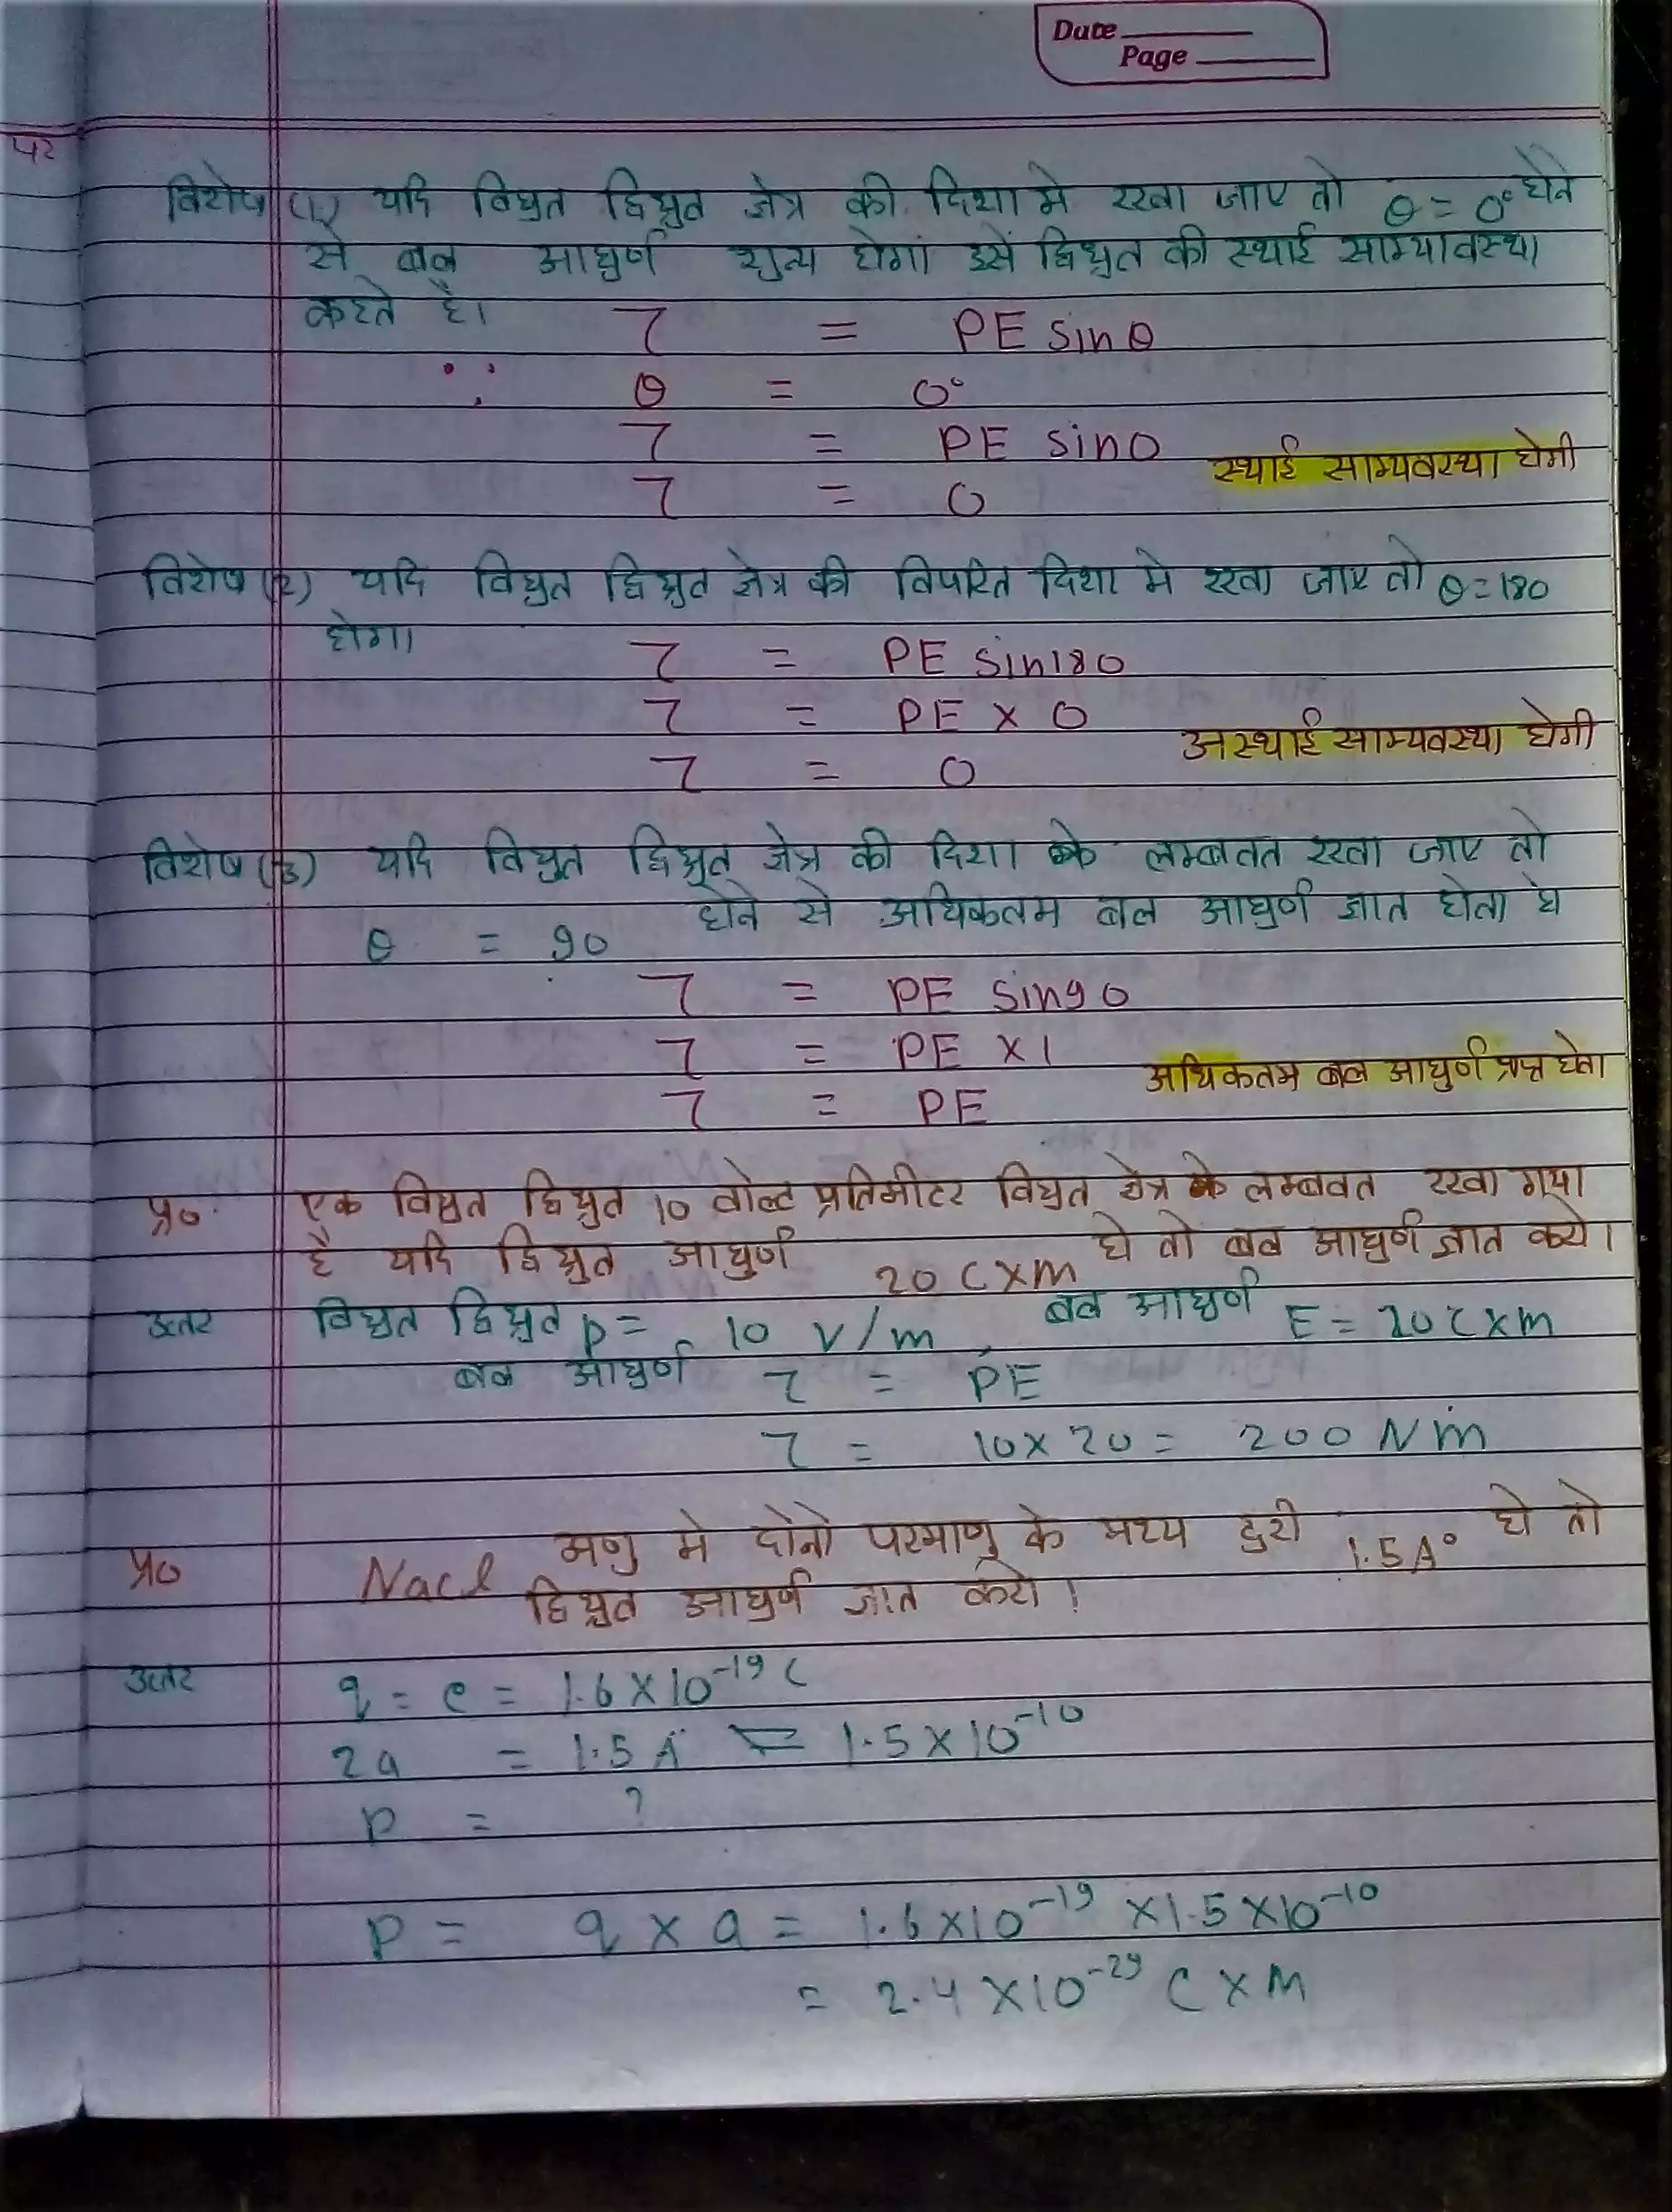 Date
Page
पर
विशेष (1) यदि विधुत द्विध्रुत क्षेत्र की दिशा मे रखा जाए तो θ = 0° होने
से बल आघुर्ण शुन्य होगा इसे द्विध्रुत की स्थाई साम्यावस्था
कहते है।
τ = PE sinθ
∵ θ = 0°
τ = PE sin0
स्थाई साम्यवस्था होगी
τ = 0
विशेष (2) यदि विधुत द्विध्रुत क्षेत्र की विपरित दिशा मे रखा जाए तो θ=180
होगा
τ = PE sin180
τ = PE × 0
अस्थाई साम्यवस्था होगी
τ = 0
विशेष (3) यदि विधुत द्विध्रुत क्षेत्र की दिशा के लम्बवत रखा जाए तो
θ = 90 होने से अधिकतम बल आघुर्ण ज्ञात होता है
τ = PE sin90
τ = PE ×1
अधिकतम बल आघुर्ण प्राप्त होता
τ = PE
प्र० एक विधुत द्विध्रुत 10 वोल्ट प्रतिमीटर विधुत क्षेत्र के लम्बवत रखा गया
है यदि द्विध्रुत आघुर्ण 20 C×m हो तो बल आघुर्ण ज्ञात करो।
उत्तर विधुत द्विध्रुत p = 10 V/m, बल आघुर्ण E = 20 C×m
बल आघुर्ण τ = PE
τ = 10×20 = 200 Nm
प्र० Nacl अणु मे दोनो परमाणु के मध्य दुरी 1.5A° हो तो
द्विध्रुत आघुर्ण ज्ञात करो।
उत्तर q = e = 1.6×10⁻¹⁹ C
2a = 1.5 A° = 1.5×10⁻¹⁰
p = ?
p = q × a = 1.6×10⁻¹⁹ ×1.5×10⁻¹⁰
= 2.4×10⁻²⁹ C×M